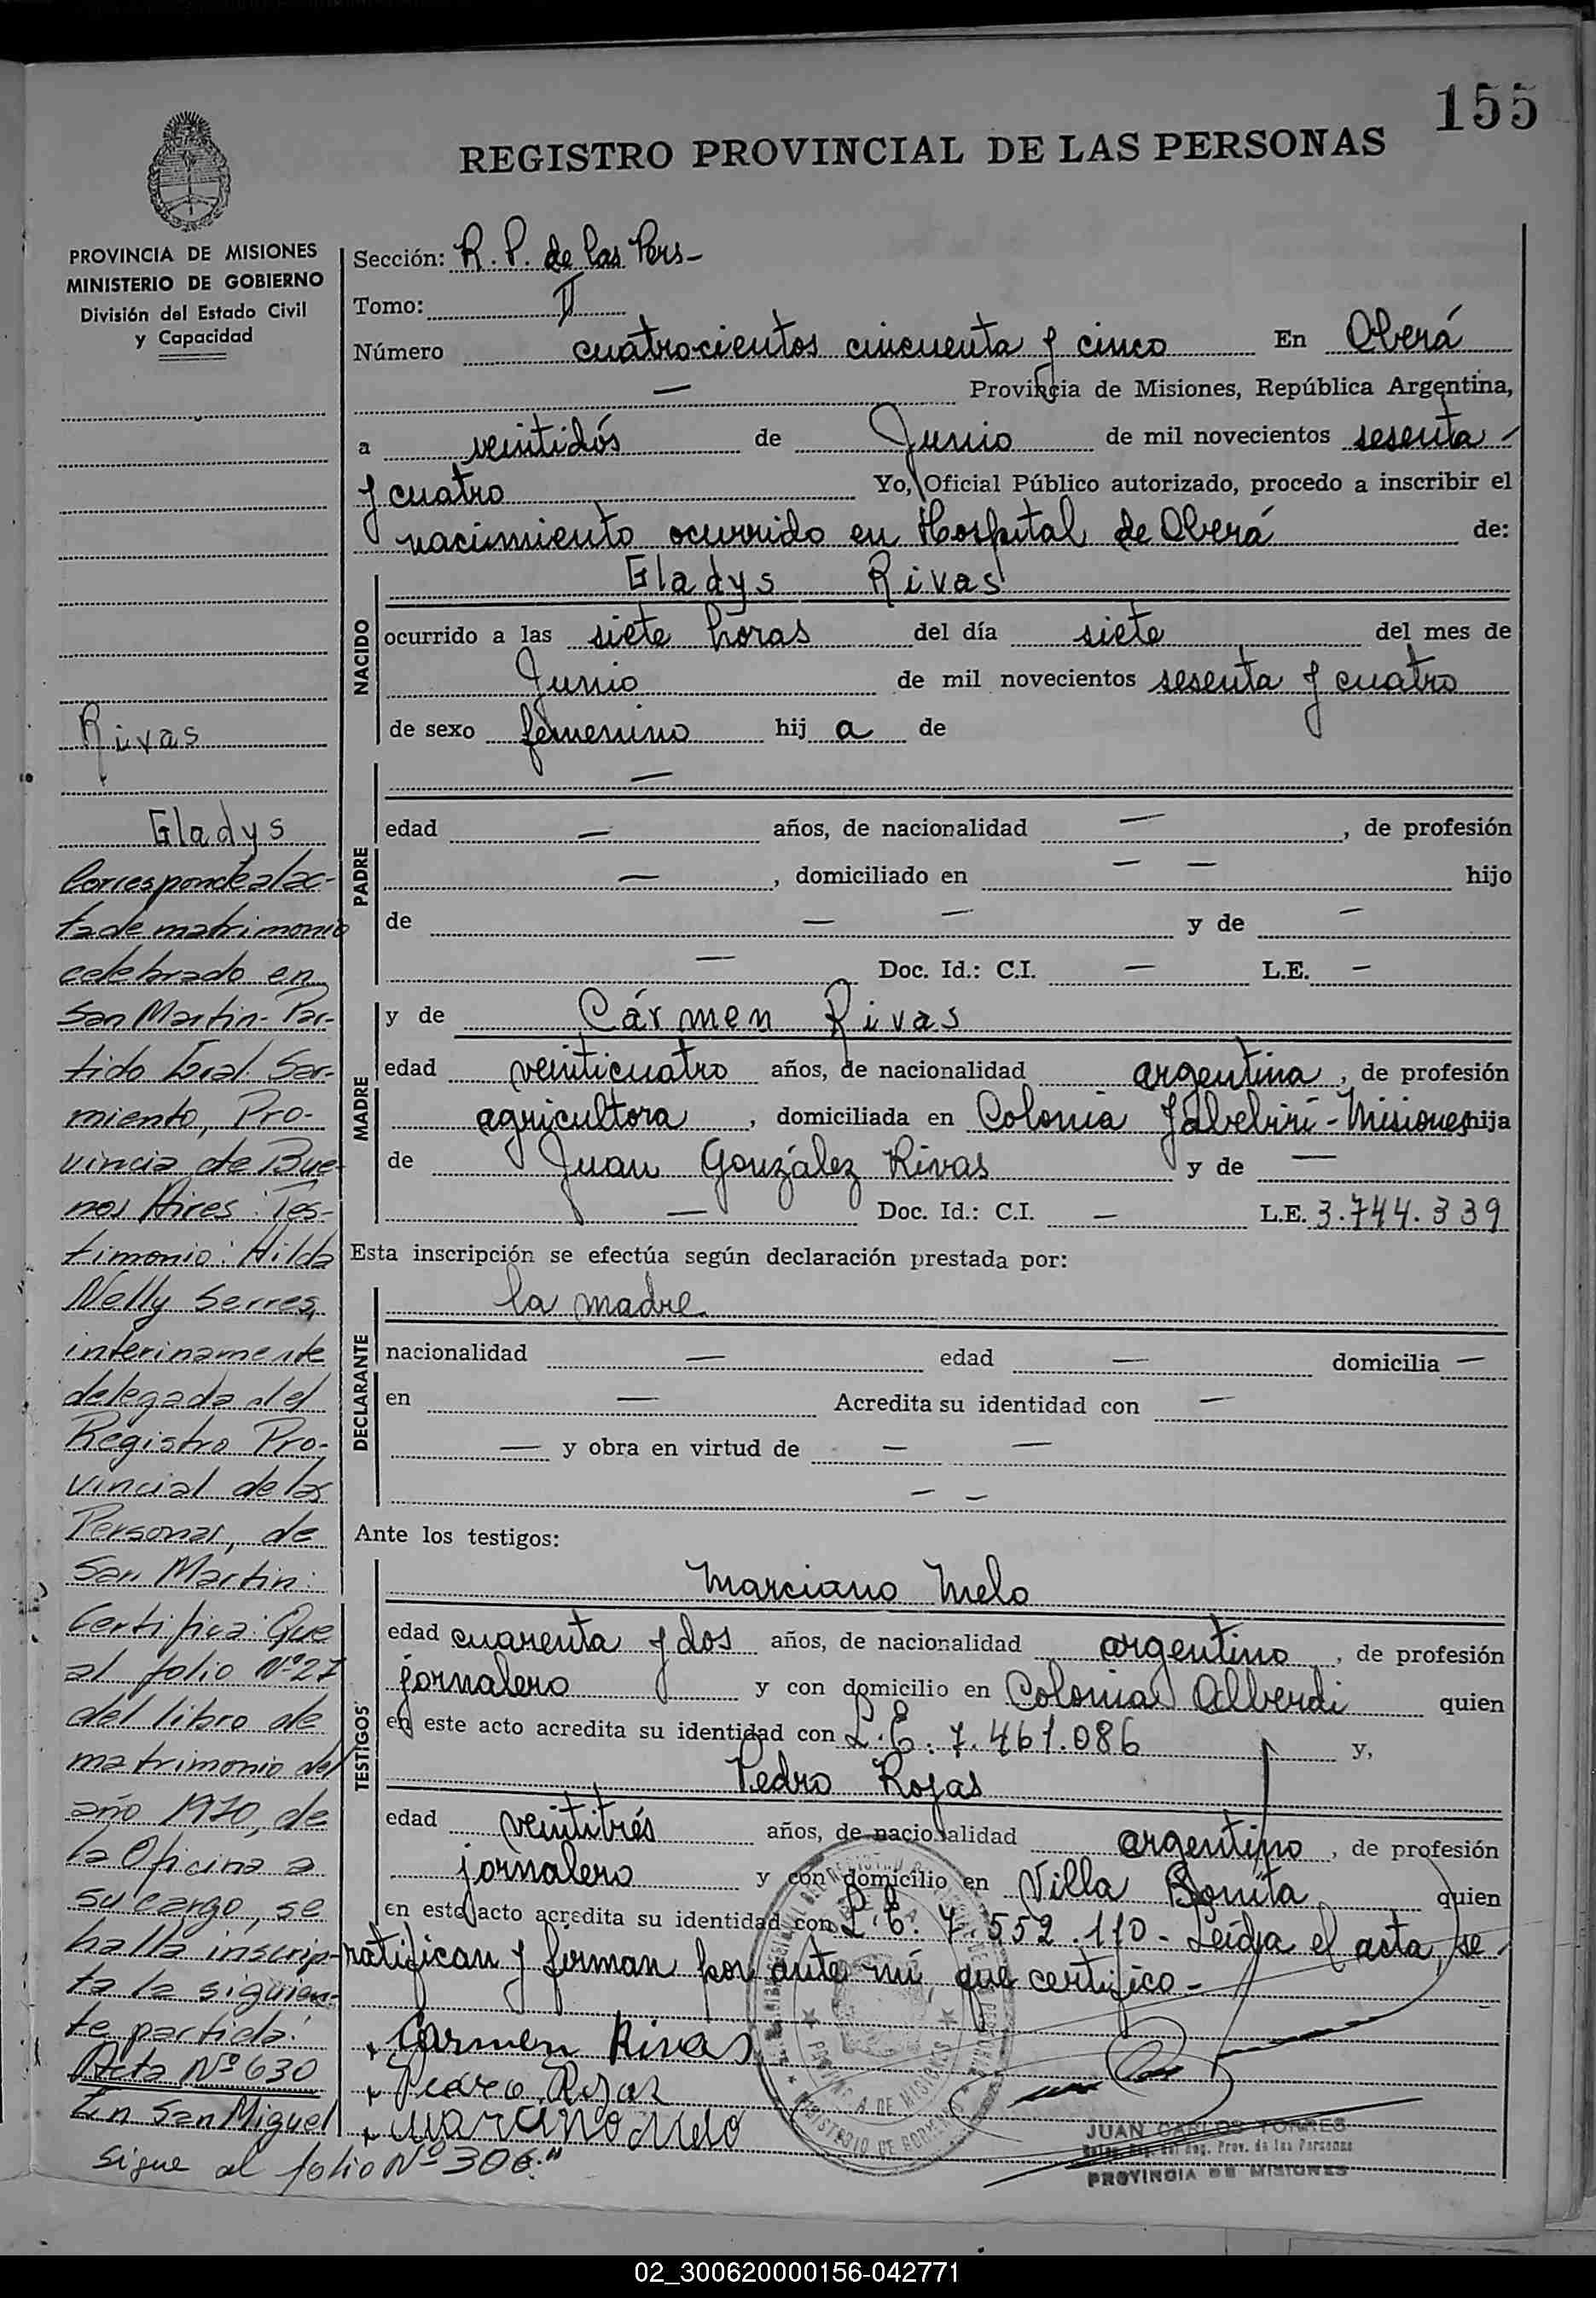 155
REGISTRO PROVINCIAL DE LAS PERSONAS
PROVINCIA DE MISIONES
MINISTERIO DE GOBIERNO
División del Estado Civil
y Capacidad
Rivas
Gladys
Corresponde al ac-
ta de matrimonio
celebrado en
San Martin - Par-
tido Gral. Sar-
miento, Pro-
vincia de Bue-
nos Aires: Tes-
timonio: Hilda
Nelly Serres,
interinamente
delegada del
Registro Pro-
vincial de las
Personas, de
San Martin:
Certifica: Que
al folio Nº 27
del libro de
matrimonio del
año 1970, de
la Oficina a
su cargo, se
halla inscrip-
ta la siguien-
te partida:
Acta Nº 630
En San Miguel
sigue al folio Nº 306."
Sección: R. P. de las Pers-
Tomo: II
Número cuatrocientos cincuenta y cinco En Oberá
— Provincia de Misiones, República Argentina,
a veintidós de Junio de mil novecientos sesenta -
y cuatro Yo, Oficial Público autorizado, procedo a inscribir el
nacimiento ocurrido en Hospital de Oberá de:
NACIDO
Gladys Rivas
ocurrido a las siete horas del día siete del mes de
Junio de mil novecientos sesenta y cuatro
de sexo femenino hij a de
PADRE
—
edad — años, de nacionalidad —, de profesión
—, domiciliado en — — hijo
de — — y de —
— Doc. Id.: C.I. — L.E. —
MADRE
y de Cármen Rivas
edad veinticuatro años, de nacionalidad argentina, de profesión
agricultora, domiciliada en Colonia Yabebirí - Misiones hija
de Juan González Rivas y de —
— Doc. Id.: C.I. — L.E. 3.744.339
Esta inscripción se efectúa según declaración prestada por:
DECLARANTE
la madre
nacionalidad — edad — domicilia —
en — Acredita su identidad con —
— y obra en virtud de — —
— —
Ante los testigos:
TESTIGOS
Marciano Melo
edad cuarenta y dos años, de nacionalidad argentino, de profesión
jornalero y con domicilio en Colonia Alberdi quien
en este acto acredita su identidad con L.E. 7.461.086 y,
Pedro Rojas
edad veintitrés años, de nacionalidad argentino, de profesión
jornalero y con domicilio en Villa Bonita quien
en este acto acredita su identidad con L.E. 7.552.110 - Leída el acta, se
ratifican y firman por ante mí que certifico -
Carmen Rivas
Pedro Rojas
Marcino Melo
PROVINCIA DE MISIONES
MINISTERIO DE GOBIERNO
JUAN CARLOS TORRES
Reg. Prov. de las Personas
PROVINCIA DE MISIONES
02_300620000156-042771